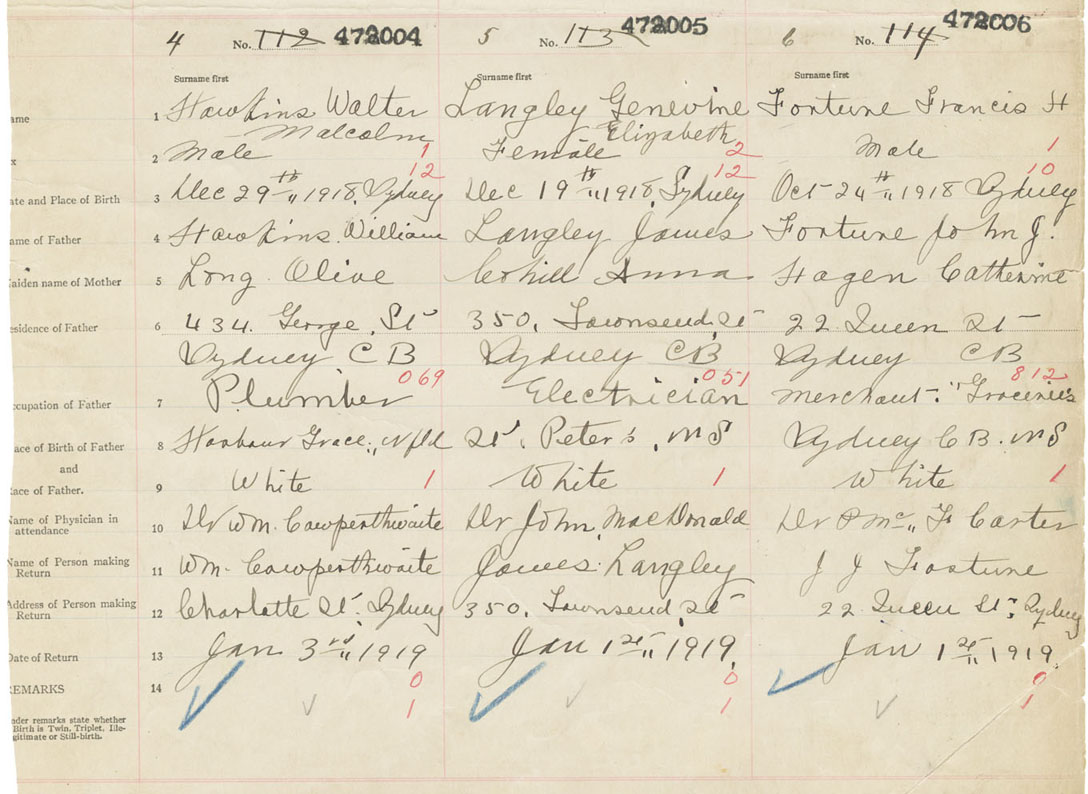 4 No. 112 472004 5 No. 113 472005 6 No. 114 472006
Surname first Surname first Surname first
ame 1 Hawkins Walter Langley Genevine Fortune Francis H
Malcolm Elizabeth
x 2 Male 1 Female 2 Male 1
12 12 10
ate and Place of Birth 3 Dec 29th 1918, Sydney Dec 19th 1918, Sydney Oct 24th 1918 Sydney
ame of Father 4 Hawkins William Langley James Fortune John J.
aiden name of Mother 5 Long Olive Anna Hagen Catherine
esidence of Father 6 434. George St 350, Townsend, St 22 Queen St
Sydney C B Sydney CB Sydney CB
069 051 812
ccupation of Father 7 Plumber Electrician Merchant. "Groceries
ace of Birth of Father 8 Harbour Grace, Nfld St. Peter's, NS Sydney C B. NS
and
ace of Father. 9 White 1 White 1 White 1
Name of Physician in attendance 10 Dr Wm. Cowperthwaite Dr John MacDonald Dr P Mc F Carter
Name of Person making Return 11 Wm. Cowperthwaite James Langley J J Fortune
Address of Person making Return 12 Charlotte St, Sydney 350, Townsend, St 22 Queen St, Sydney
Date of Return 13 Jan 3rd 1919 Jan 1st 1919, Jan 1st 1919
EMARKS 14 0 0 0
nder remarks state whether 1 1 1
Birth is Twin, Triplet, Ille-
gitimate or Still-birth.